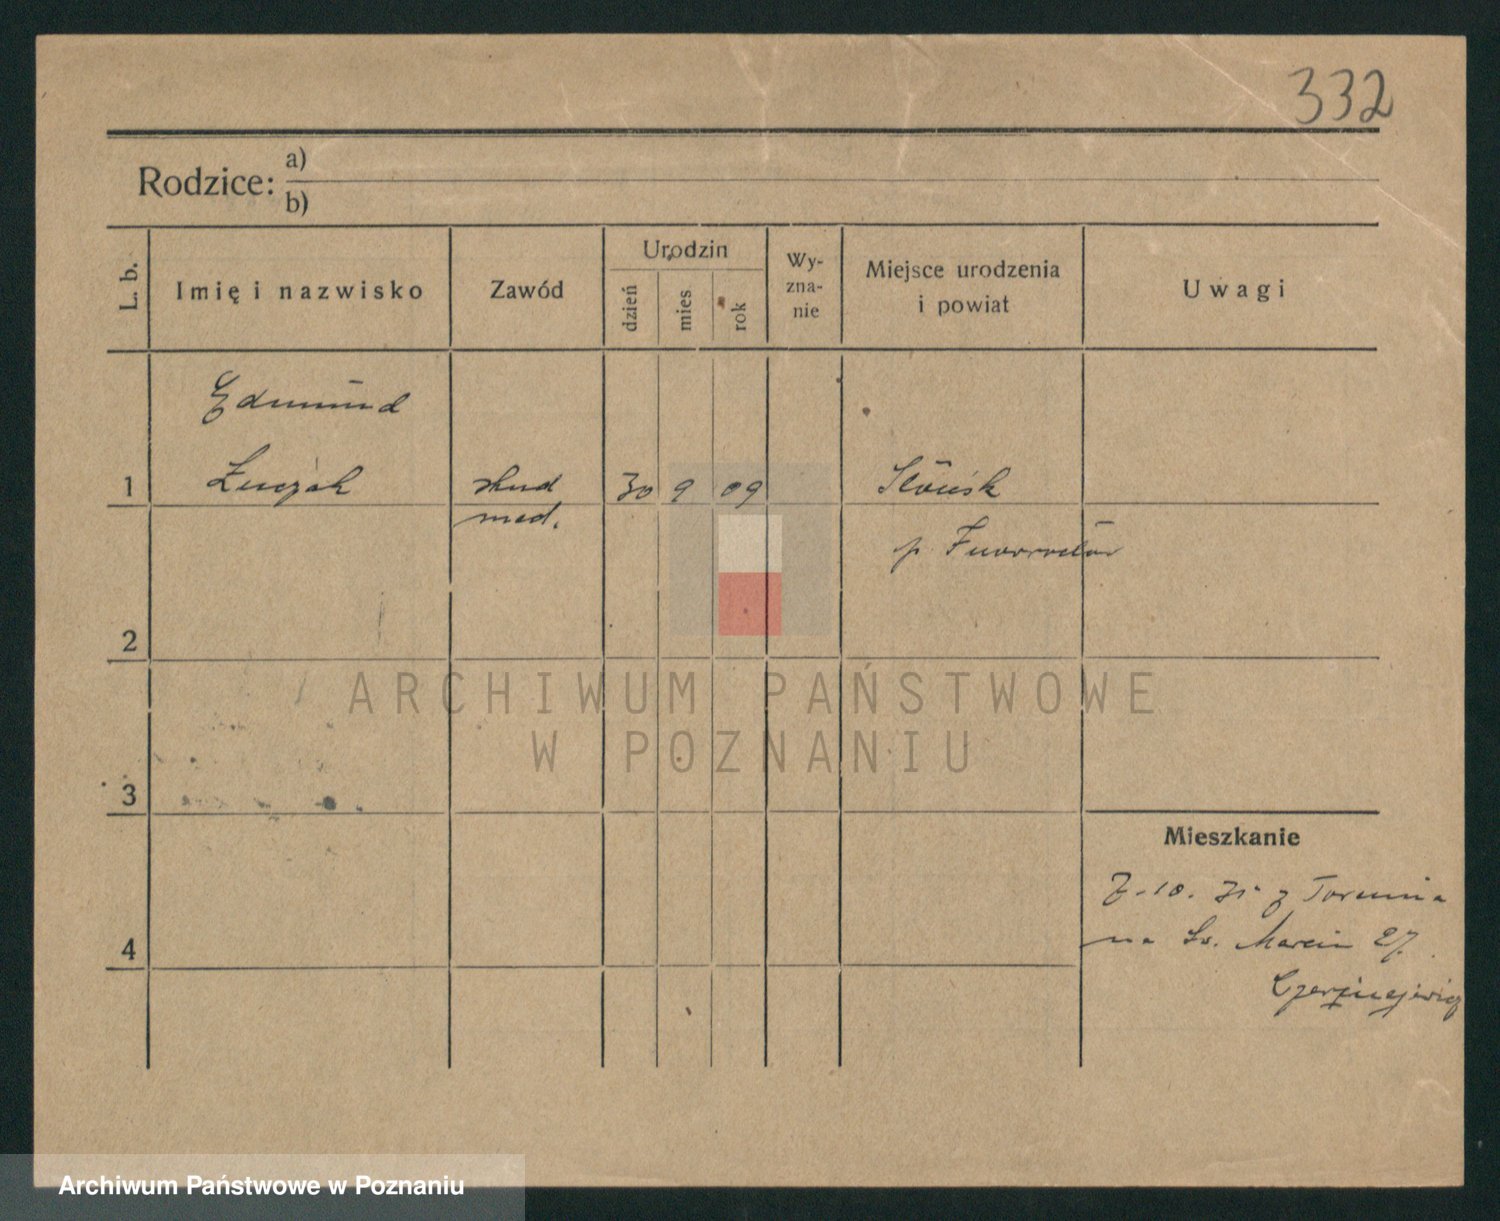 332
Rodzice: a)
b)
L. b.
Imię i nazwisko
Zawód
Urodzin
dzień
mies
rok
Wy-
zna-
nie
Miejsce urodzenia
i powiat
Uwagi
Edmund
1 stud 30 9 09 Słońsk
med.
p.
2
3
4
Mieszkanie
z Torunia
na Św. Marcin 27.
ARCHIWUM PAŃSTWOWE
W POZNANIU
Archiwum Państwowe w Poznaniu